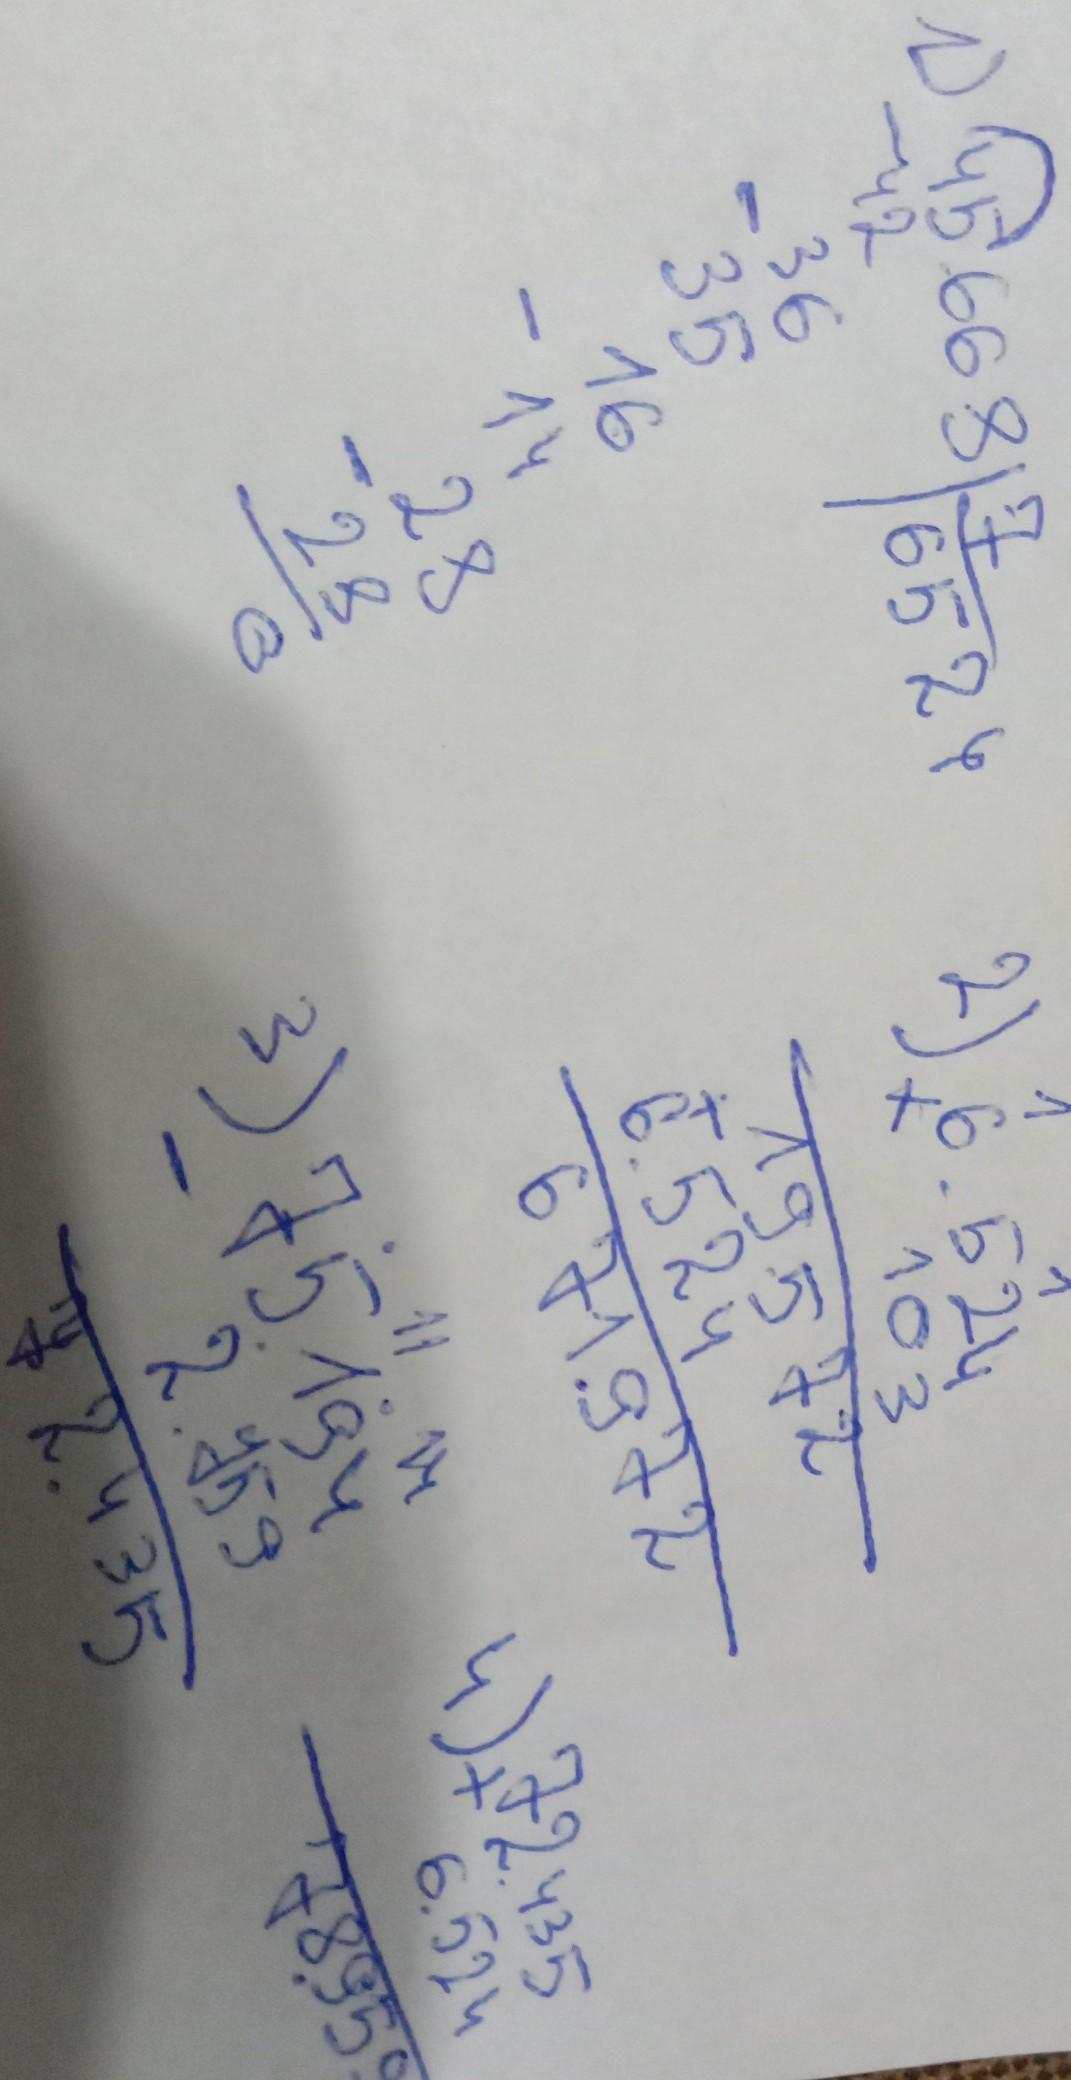 1) 45668 7
- 42 6524
36
- 35
16
- 14
28
- 28
0
2) 1 1
6.524
× 103
19572
+ 6.524
671.972
3) 11 14
75.194
- 2.759
72.435
4) 72.435
+ 6.524
78.959